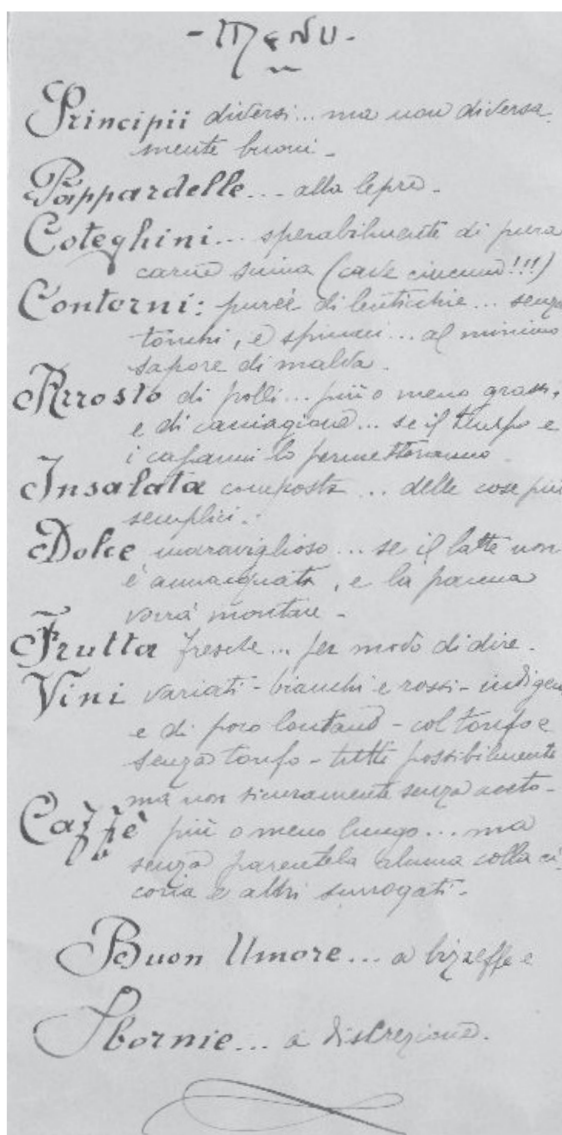 - MENU -
Principii diversi... ma non diversa
mente buoni -
Pappardelle... alla lepre -
Coteghini... sperabilmente di pura
carne suina (cave cinema!!!)
Contorni: pureè di lenticchie... senza
tonchi, e spinaci... al minimo
sapore di malva -
Arrosto di polli... più o meno grassi,
e di cacciagione... se il tempo e
i capanni lo permetteranno -
Insalata composta... delle cose più
semplici -
Dolce maraviglioso... se il latte non
è annacquato, e la panna
vorrà montare -
Frutta fresche... per modo di dire -
Vini variati - bianchi e rossi - indigeni
e di poco lontano - col tonfo e
senza tonfo - tutti possibilmente
ma non sicuramente senza aceto -
Caffè più o meno lungo... ma
senza parentela alcuna colla ci
coria e altri surrogati -
Buon Umore... a bizzeffe e
Sbornie... a discrezione.